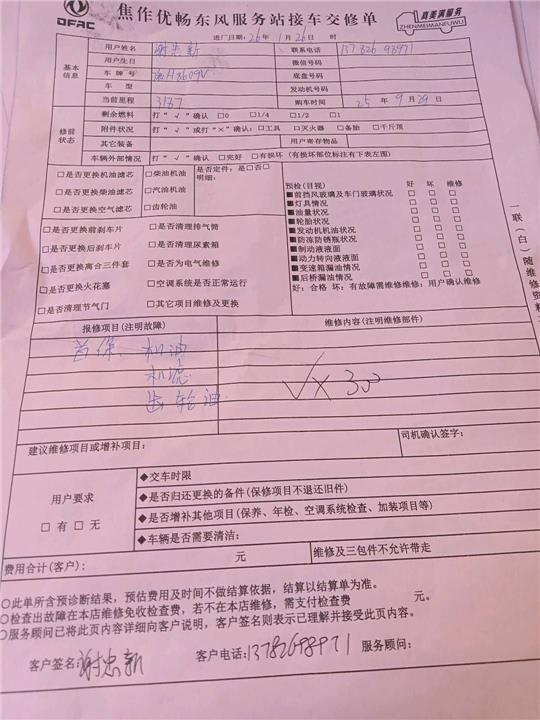 DFAC
焦作优畅东风服务站接车交修单
真美满服务
ZHENMEIMANFUWU
进厂日期: 26年 1月26日 时
基本信息
用户姓名 谢忠新 联系电话
用户生日 微信号码
车牌号 底盘号码
车型 发动机号码
当前里程 3187 购车时间 25年9月29日
修前状态
剩余燃料 打“√”确认 □0 □1/4 □1/2 □1
附件状况 打“√”或打“×”确认:□工具 □灭火器 □备胎 □千斤顶
其它装备 用户寄存物品
车辆外部情况 打“√”确认 □完好 □有损坏(有损坏部位标注有下表左图)
□是否更换机油滤芯 □柴油机油 是否定件:是□否□
□是否更换柴油滤芯 □汽油机油 明细:
□是否更换空气滤芯 □齿轮油
□是否更换前刹车片 □是否清理排气筒
□是否更换后刹车片 □是否清理尿素箱
□是否更换离合三件套 □是否为电气维修
□是否更换火花塞 □空调系统是否正常运行
□是否清理节气门 □其它项目维修及更换
预检(目视) 好 坏 维修
■前挡风玻璃及车门玻璃状况 □ □ □
■灯具情况 □ □ □
■油量状况 □ □ □
■轮胎状况 □ □ □
■发动机机油状况 □ □ □
■防冻防锈瓶状况 □ □ □
■制动液液面 □ □ □
■动力转向液液面 □ □ □
■变速箱漏油情况 □ □ □
■后桥漏油情况 □ □ □
好:合格 坏:有故障需维修维修:用户确认维修
一联(白)随维修资料
报修项目(注明故障) 维修内容(注明维修部件)
首保 机油
机滤
齿轮油
建议维修项目或增补项目: 司机确认签字:
用户要求
□有 □无
◆交车时限
◆是否归还更换的备件(保修项目不退还旧件)
◆是否增补其他项目(保养、年检、空调系统检查、加装项目等)
◆车辆是否需要清洁:
费用合计(客户): 元 维修及三包件不允许带走
○此单所含预诊断结果,预估费用及时间不做结算依据,结算以结算单为准。
○检查出故障在本店维修免收检查费,若不在本店维修,需支付检查费 元。
○服务顾问已将此页内容详细向客户说明,客户签名则表示已理解并接受此页内容。
客户签名:谢忠新 客户电话:13782698971 服务顾问: